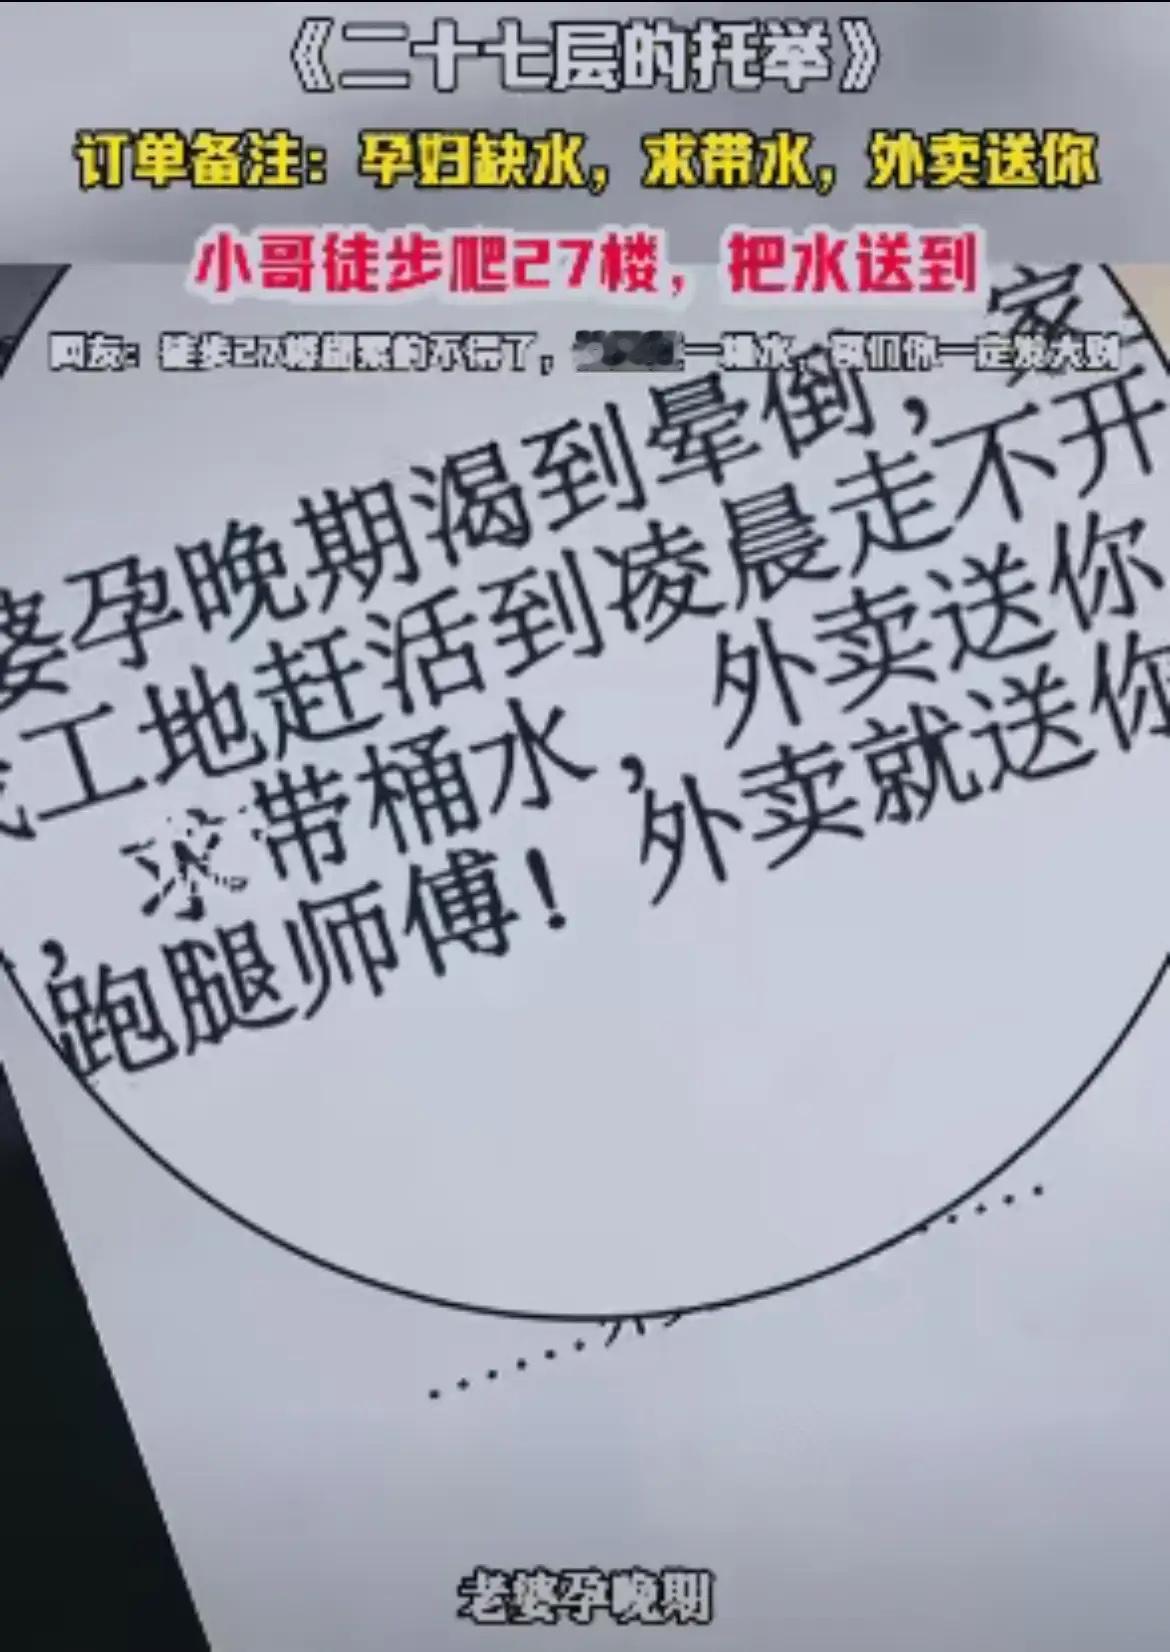 《二十七层的托举》
订单备注：孕妇缺水，求带水，外卖送你
小哥徒步爬27楼，把水送到
网友：徒步27楼 的不得了， 一桶水， 你一定发大财
家
婆孕晚期渴到晕倒，
工地赶活到凌晨走不开
，求带桶水，外卖送你
跑腿师傅！外卖就送你
老婆孕晚期